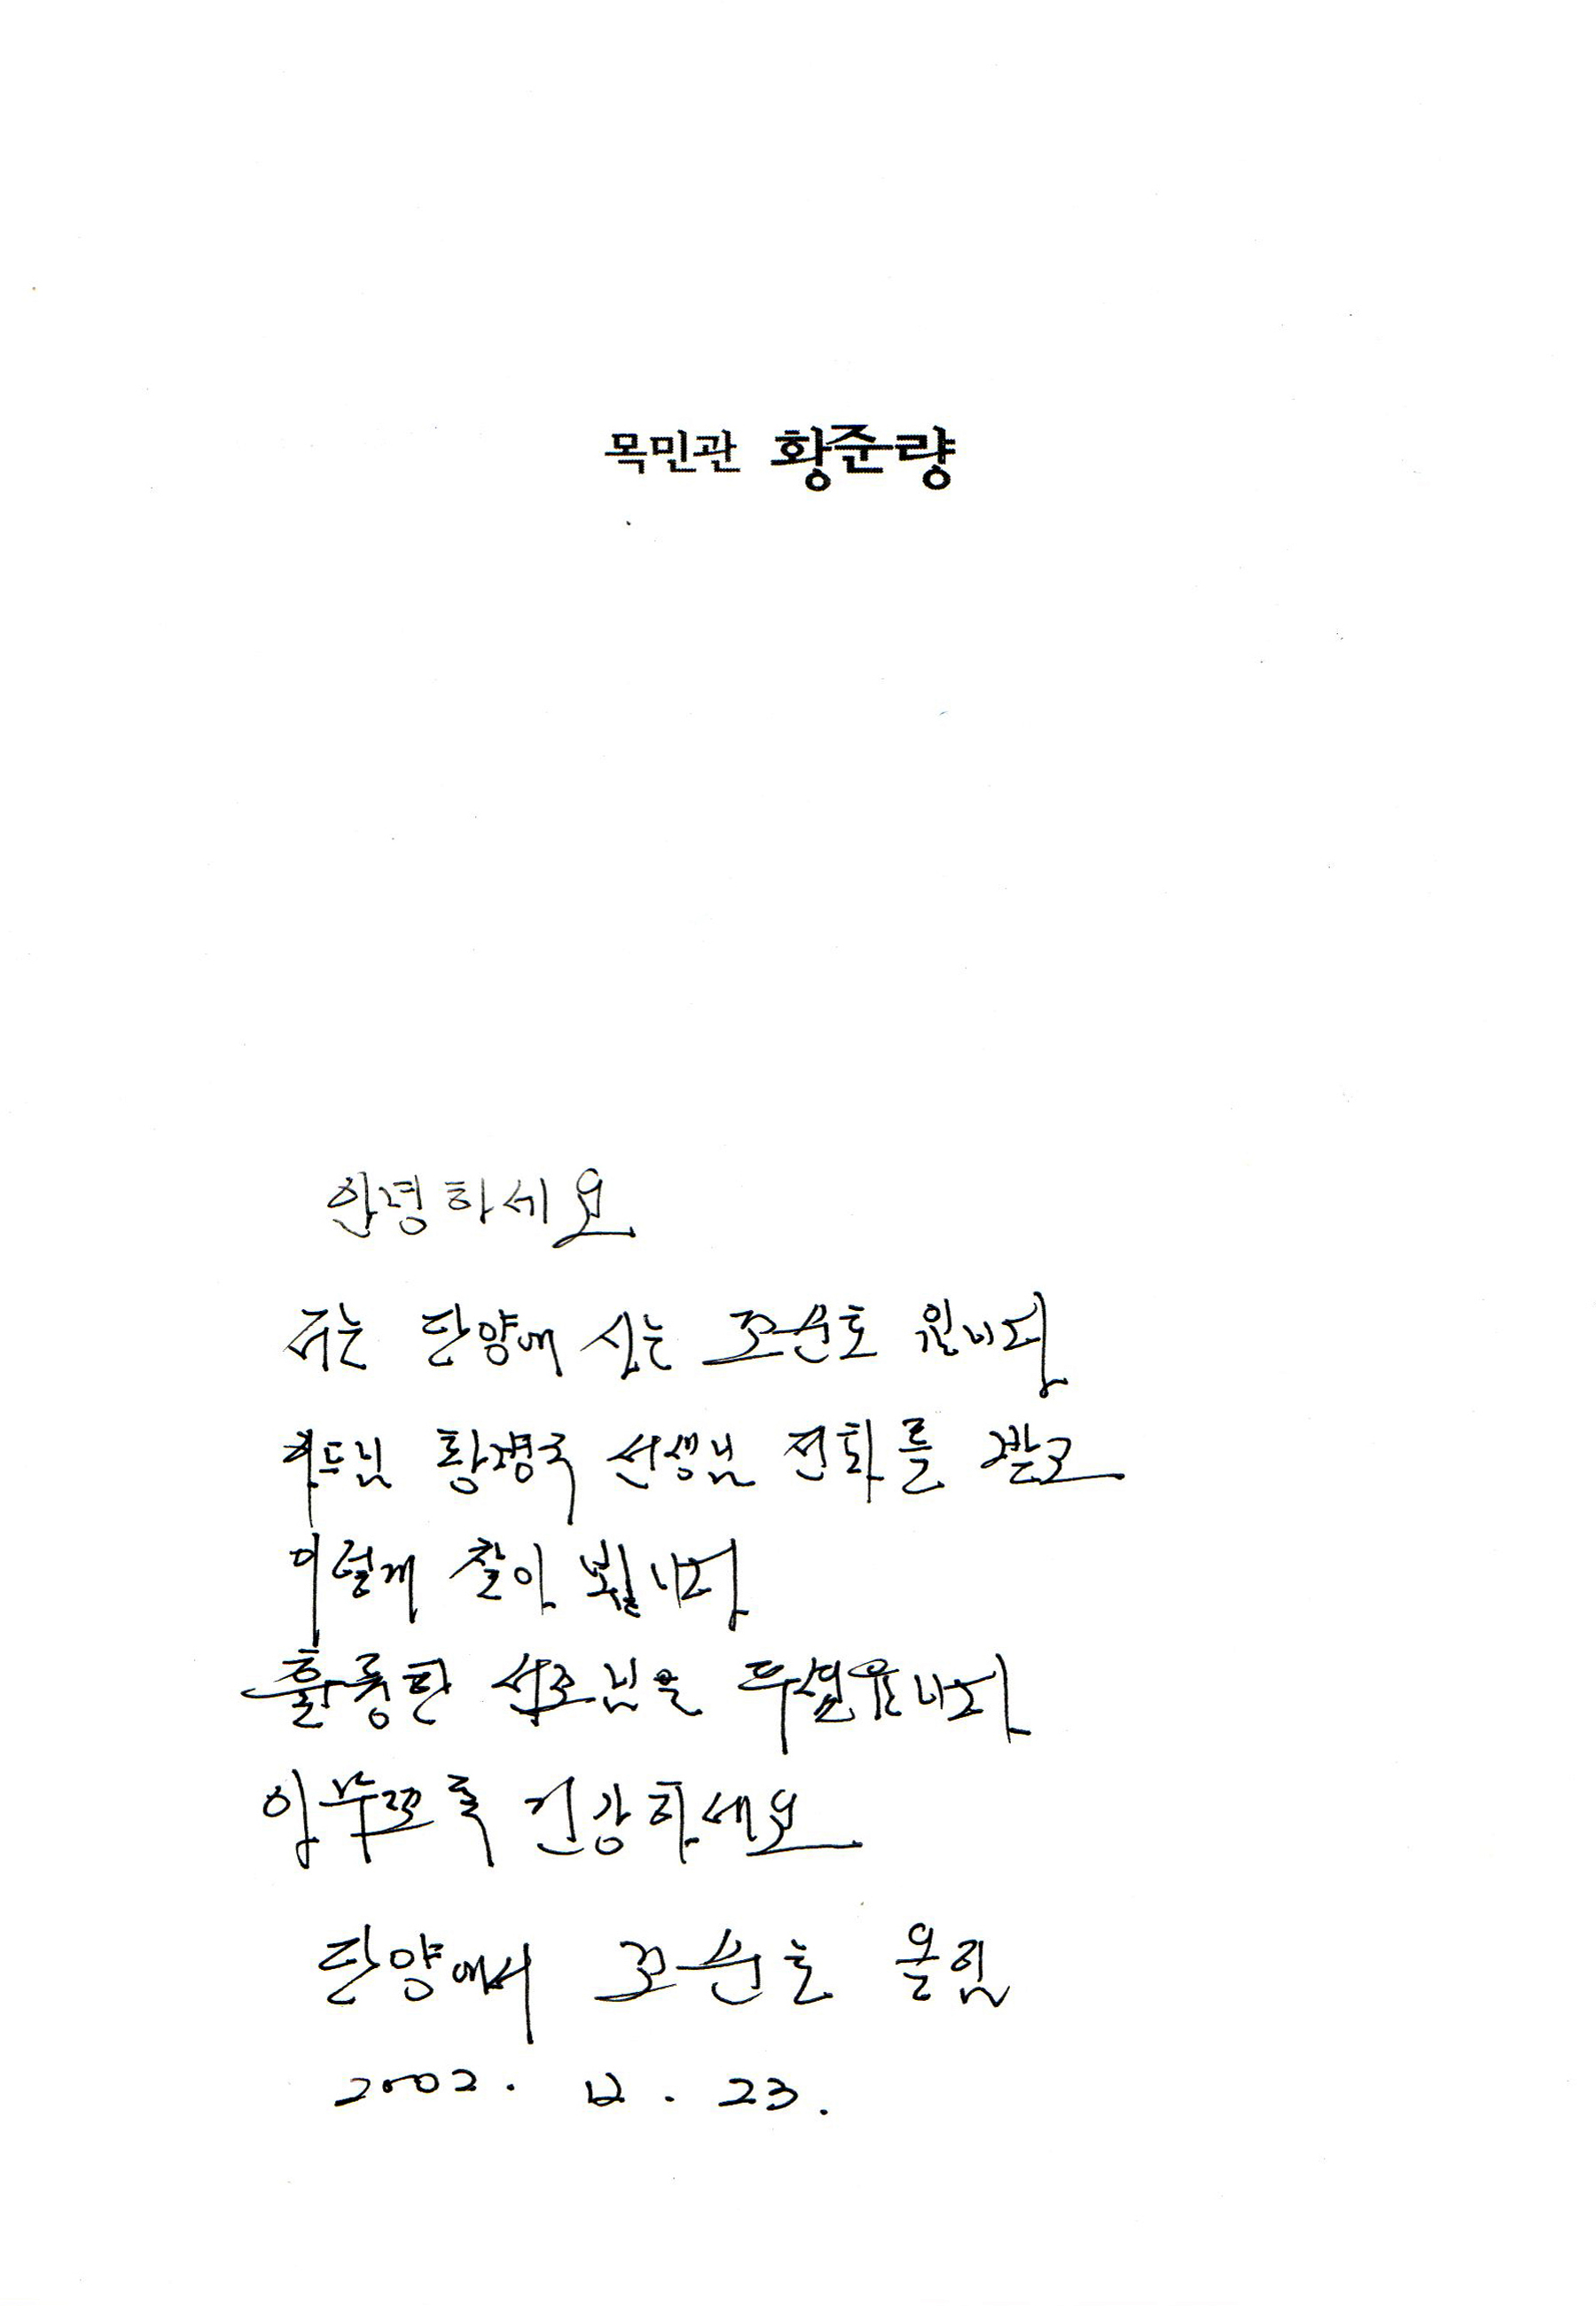 목민관 황준량
안녕하세요
저는 단양에 사는 조순호 입니다
황병국 선생님 전화를 받고
이렇게 찾아 뵙니다
훌륭한 선조님을 두셨읍니다
아무쪼록 건강하세요
단양에서 조순호 올림
2002. 12. 23.